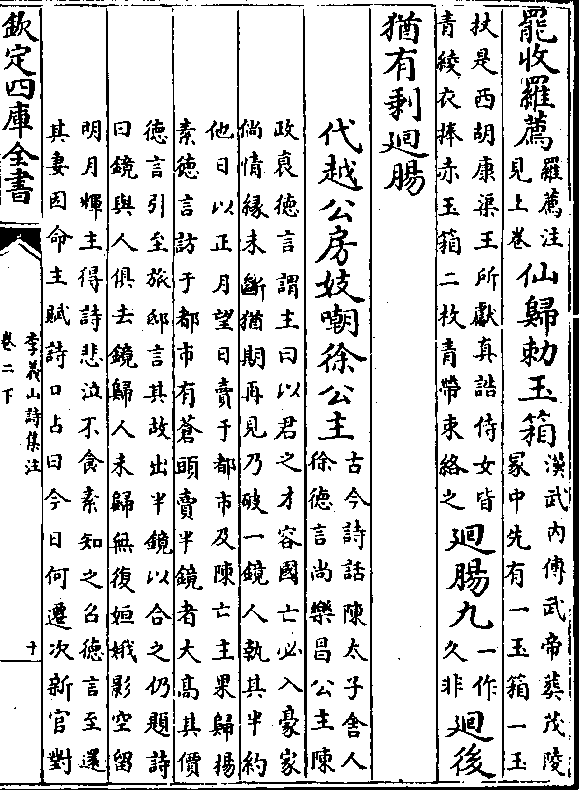 罷收羅薦羅薦注見上卷仙歸勅玉箱漢武内傳武帝葬茂陵冢中先有一玉箱一玉
杖是西胡康渠王所獻真誥侍女皆青綾衣捧赤玉箱二枚青帶束絡之迴腸九一作久非迴後
猶有剩迴腸
代越公房妓嘲徐公主古今詩話陳太子舍人徐德言尚樂昌公主陳
政衰德言謂主曰以君之才容國亡必入豪家
倘情縁未斷猶期再見乃破一鏡人執其半約
他日以正月望日賣于都市及陳亡主果歸楊
素德言訪于都市有蒼頭賣半鏡者大高其價
德言引至旅邸言其故出半鏡以合之仍題詩
曰鏡與人俱去鏡歸人未歸無復姮娥影空留
明月輝主得詩悲泣不食素知之召德言至還
其妻因命主賦詩口占曰今日何遷次新官對
欽定四庫全書
李義山詩集注
卷二下
十